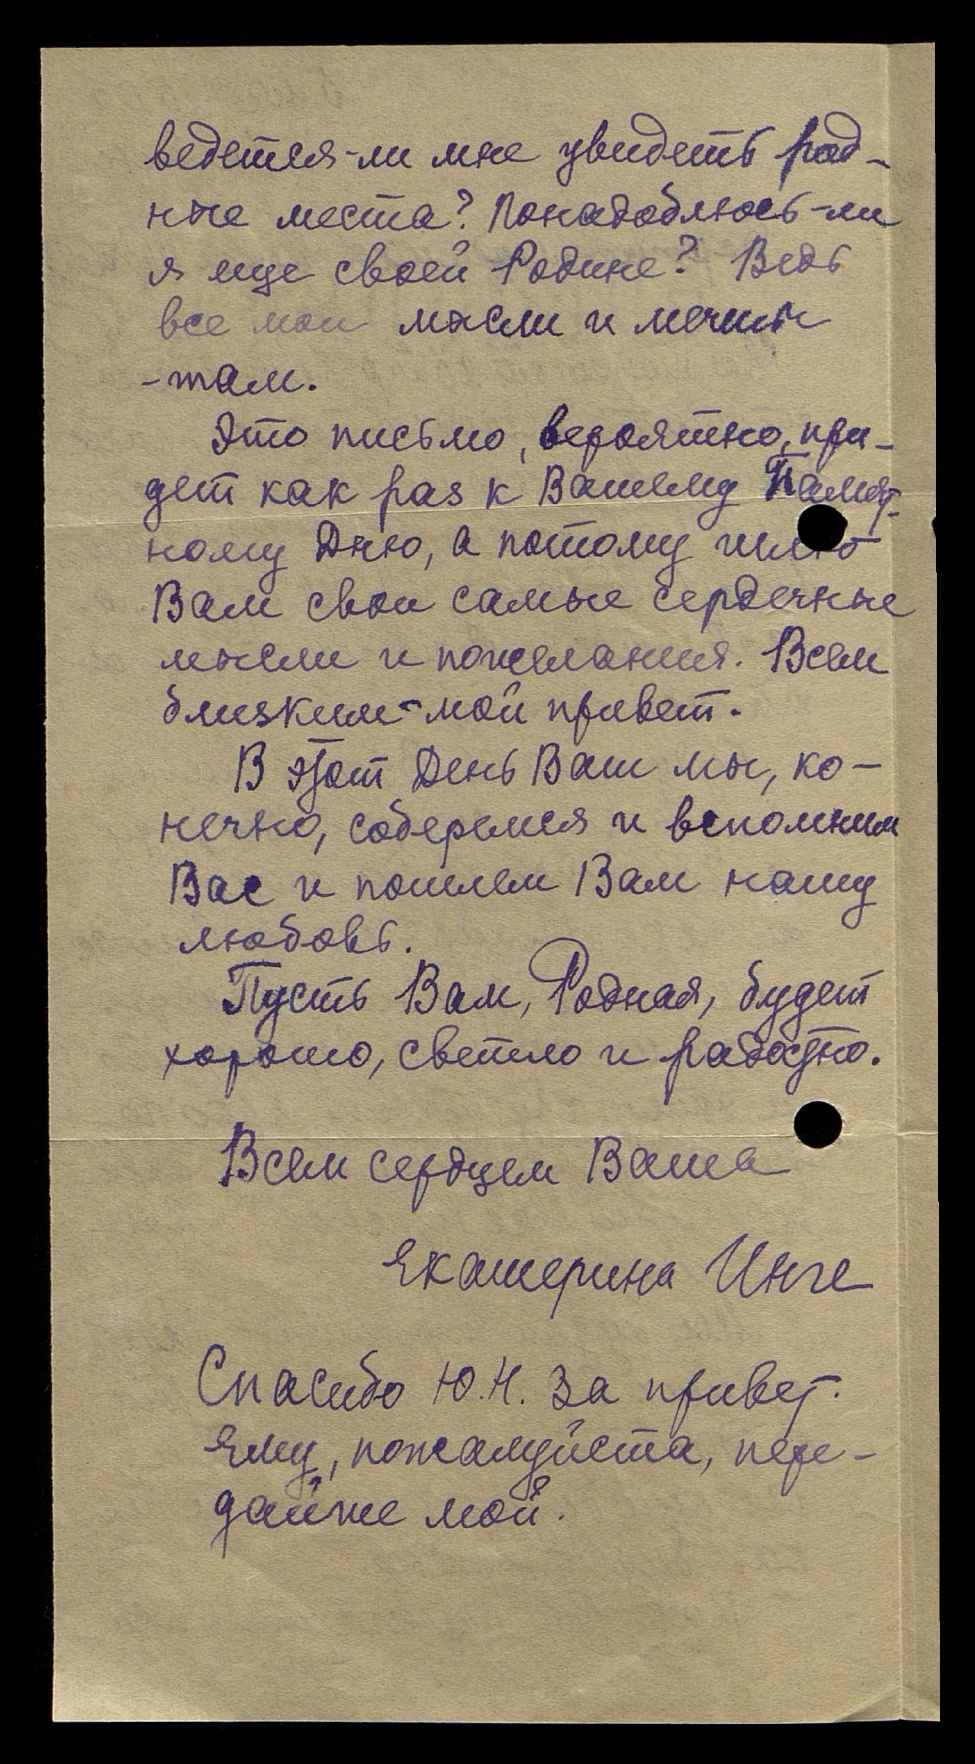 ведется-ли мне увидеть род-
ные места? Понадоблюсь-ли
я еще своей Родине? Ведь
все мои мысли и мечты
-там.
Это письмо, вероятно, при-
дет как раз к Вашему Памят-
ному Дню, а потому шлю
Вам свои самые сердечные
мысли и пожелания. Всем
близким-мой привет.
В этот День Ваш мы, ко-
нечно, соберемся и вспомним
Вас и пошлем Вам нашу
любовь.
Пусть Вам, Родная, будет
хорошо, светло и радостно.
Всем сердцем Ваша
Екатерина Инге
Спасибо Ю.Н. за привет.
Ему, пожалуйста, пере-
дайте мой.